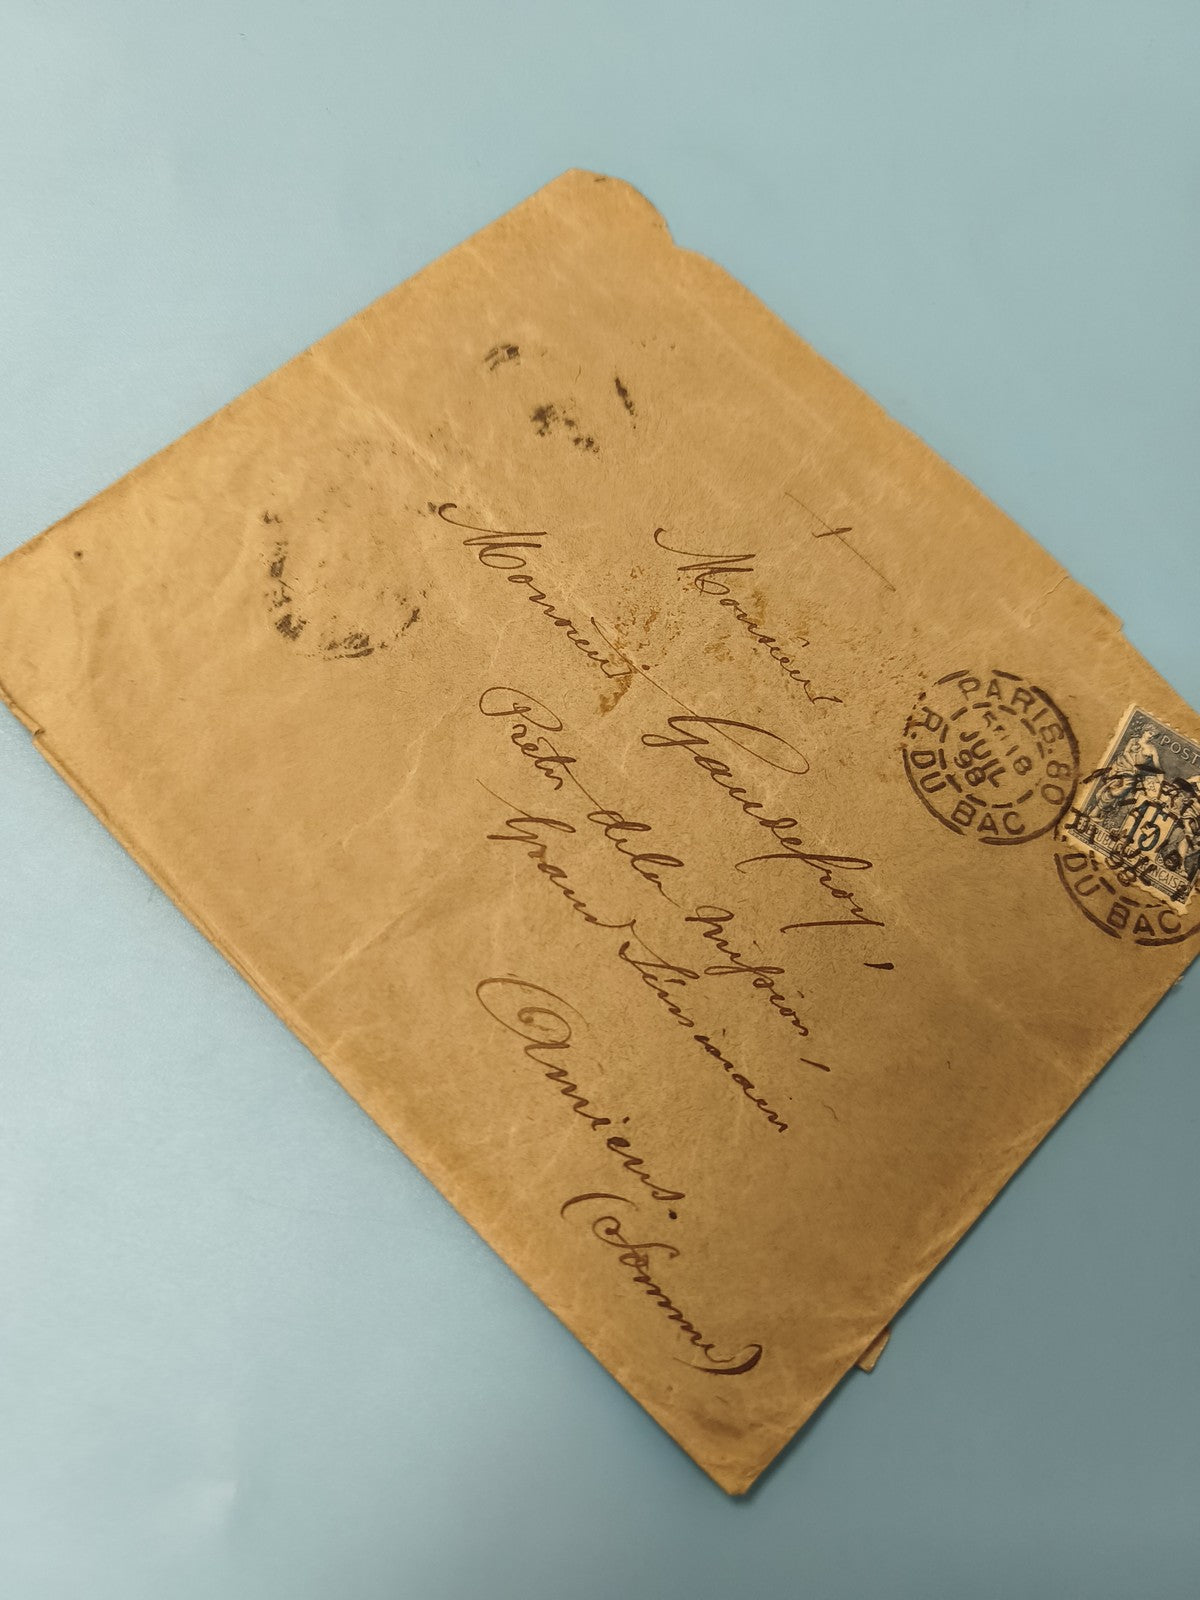 Monsieur
Monsieur Gaudefroy,
Prêtre de la Mission,
Grand Séminaire
Amiens.
(Somme)
PARIS. 80
18
JUIL
98
R. DU BAC
POST
15
98
DU BAC